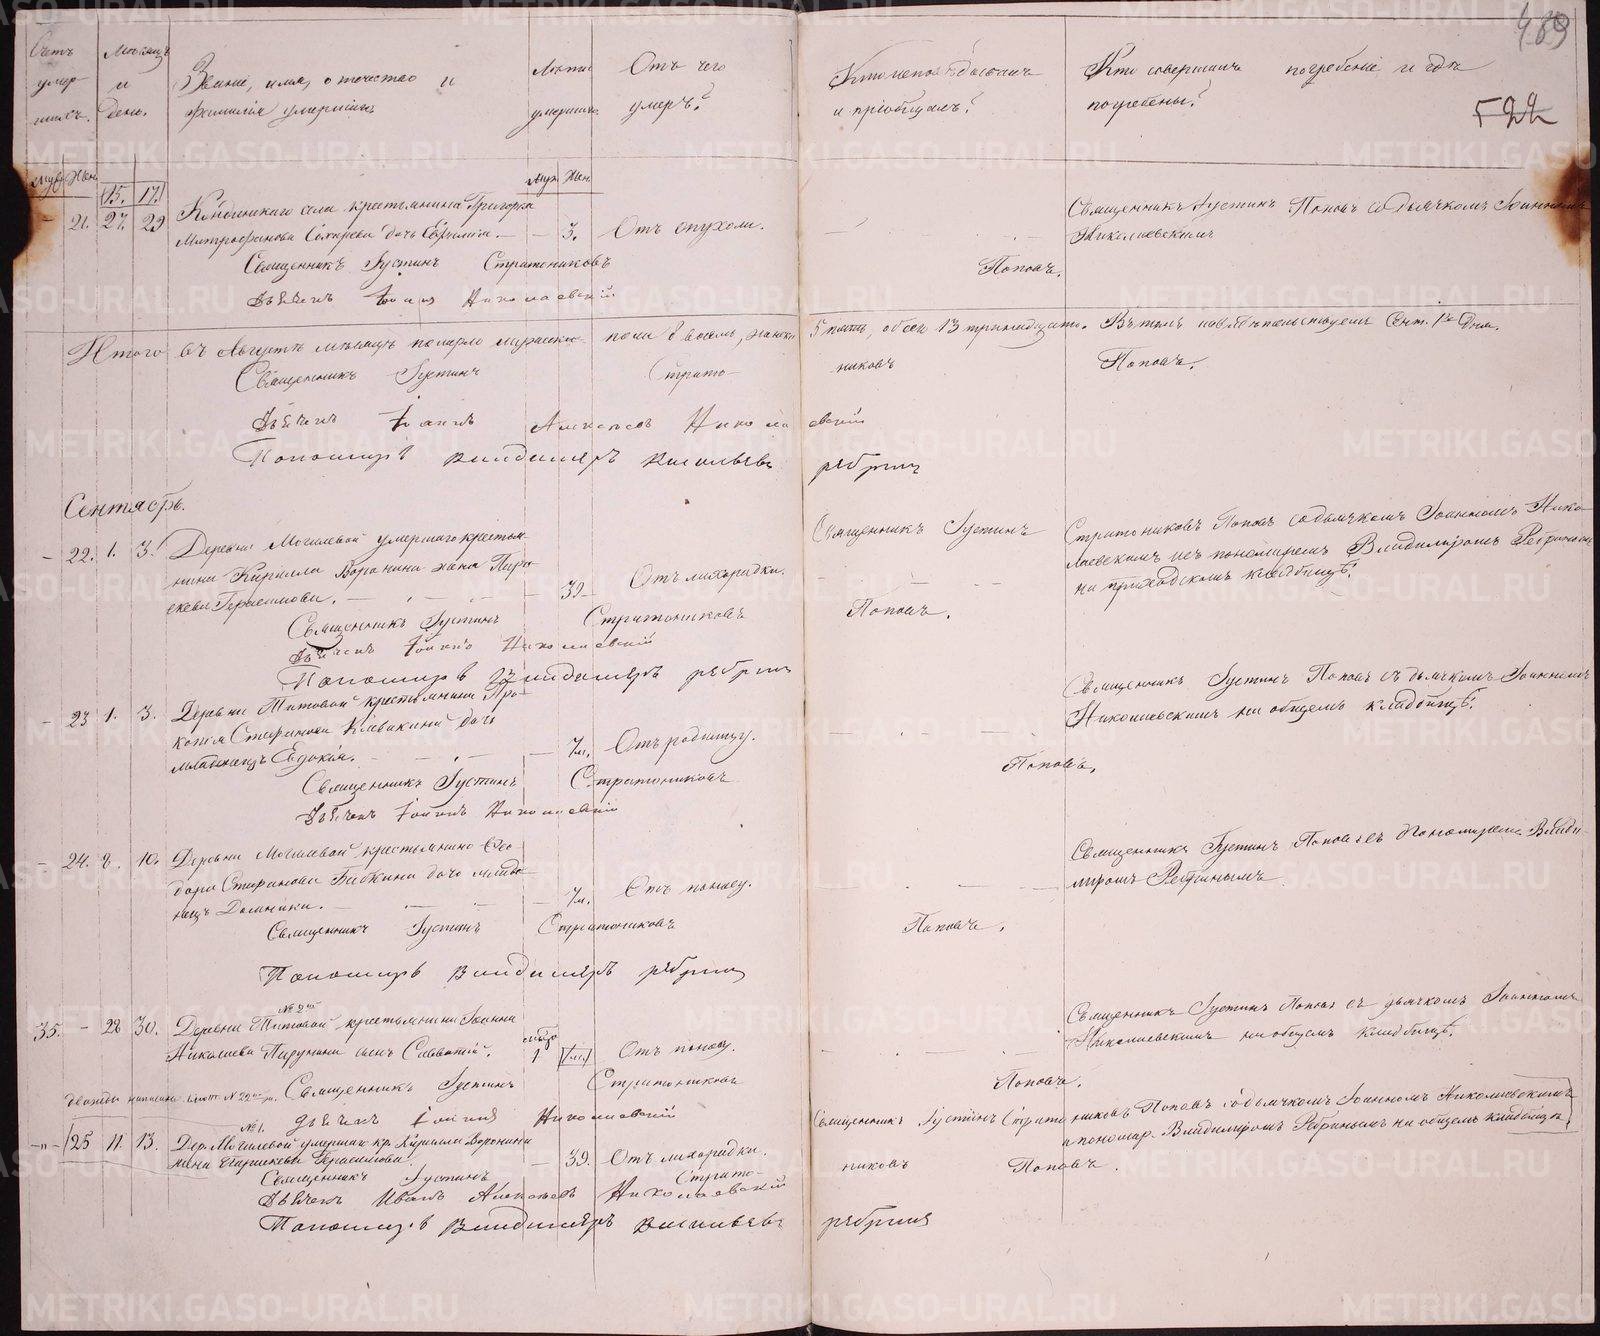 489
522
Счетъ умершихъ.
Мѣсяцъ и день.
Званіе, имя, отчество и фамилія умершихъ.
Лѣта умершаго.
Отъ чего умеръ?
Кто исповѣдывалъ и пріобщалъ?
Кто совершалъ погребеніе и гдѣ погребены?
муж. жен.
муж. жен.
21. 27. 29
села крестьянина Григорія
Митрофанова дочь
3. Отъ опухоли.
Священникъ Іустинъ Поповъ съ дьячкомъ Іоанномъ
Николаевскимъ
Священникъ Іустинъ Стратониковъ Поповъ.
Дьячекъ Іоаннъ Николаевскій
Итого въ Августѣ мѣсяцѣ померло мужеска пола 8 восемь, женска 5 пять, обоего 13 тринадцать. Въ томъ свидѣтельствуемъ Сент. 1го дня.
Священникъ Іустинъ Стратониковъ Поповъ.
Дьячекъ Іоаннъ Алексѣевъ Николаевскій
Пономарь Владимиръ Васильевъ Ребринъ
Сентябрь.
22. 1. 3. Деревни Могилевой умершаго крестья-
нина Кирилла Воронина жена Пара-
скева Герасимова. 39 Отъ лихорадки.
Священникъ Іустинъ Стратониковъ Поповъ съ дьячкомъ Іоанномъ Нико-
лаевскимъ и съ пономаремъ Владимиромъ Ребринымъ
на приходскомъ кладбищѣ.
Священникъ Іустинъ Стратониковъ Поповъ.
Дьячекъ Іоаннъ Николаевскій
Пономарь Владимиръ Ребринъ
23 1. 3. Деревни Титовой крестьянина Про-
копія Стефанова дочь
младенецъ Евдокія. 7м. Отъ родимцу.
Священникъ Іустинъ Поповъ съ дьячкомъ Іоанномъ
Николаевскимъ на общемъ кладбищѣ.
Священникъ Іустинъ Стратониковъ Поповъ.
Дьячекъ Іоаннъ Николаевскій
24. 8. 10. Деревни Могилевой крестьянина Ѳео-
дора Стефанова Бабкина дочь младе-
нецъ Домника. 7м. Отъ поносу.
Священникъ Іустинъ Поповъ съ пономаремъ Влади-
миромъ Ребринымъ
Священникъ Іустинъ Стратониковъ Поповъ.
Пономарь Владимиръ Ребринъ
№ 2й
35. - 28 30. Деревни Титовой крестьянина Іоанна
Николаева сынъ Савватій. 1 Отъ поносу.
Священникъ Іустинъ Поповъ съ дьячкомъ Іоанномъ
Николаевскимъ на общемъ кладбищѣ.
Священникъ Іустинъ Стратониковъ Поповъ.
дважды написана
Дьячекъ Іоаннъ Николаевскій
№ 1.
25 11. 13. Дер. Могилевой умершаго кр. Кирилла Воронина
жена Параскева Герасимова. 39. Отъ лихорадки.
Священникъ Іустинъ Стратониковъ Поповъ съ дьячкомъ Іоанномъ Николаевскимъ
и пономар. Владимиромъ Ребринымъ на общемъ кладбищѣ
Священникъ Іустинъ Стратониковъ Поповъ.
Дьячекъ Иванъ Алексѣевъ Николаевскій
Пономарь Владимиръ Васильевъ Ребринъ
METRIKI.GASO-URAL.RU